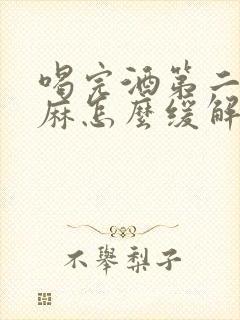 喝完酒第二
麻怎麼缓解
不舉梨子